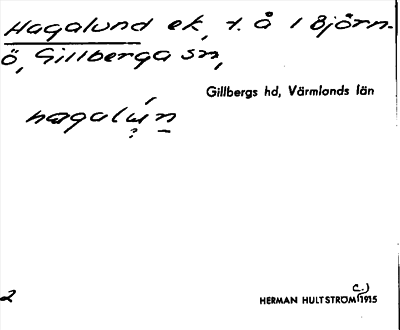 Hagalund ek, t. å 1 Björn-
ö, Gillberga sn,
Gillbergs hd, Värmlands län
hagalún
?
2
HERMAN HULTSTRÖM (c.) 1915